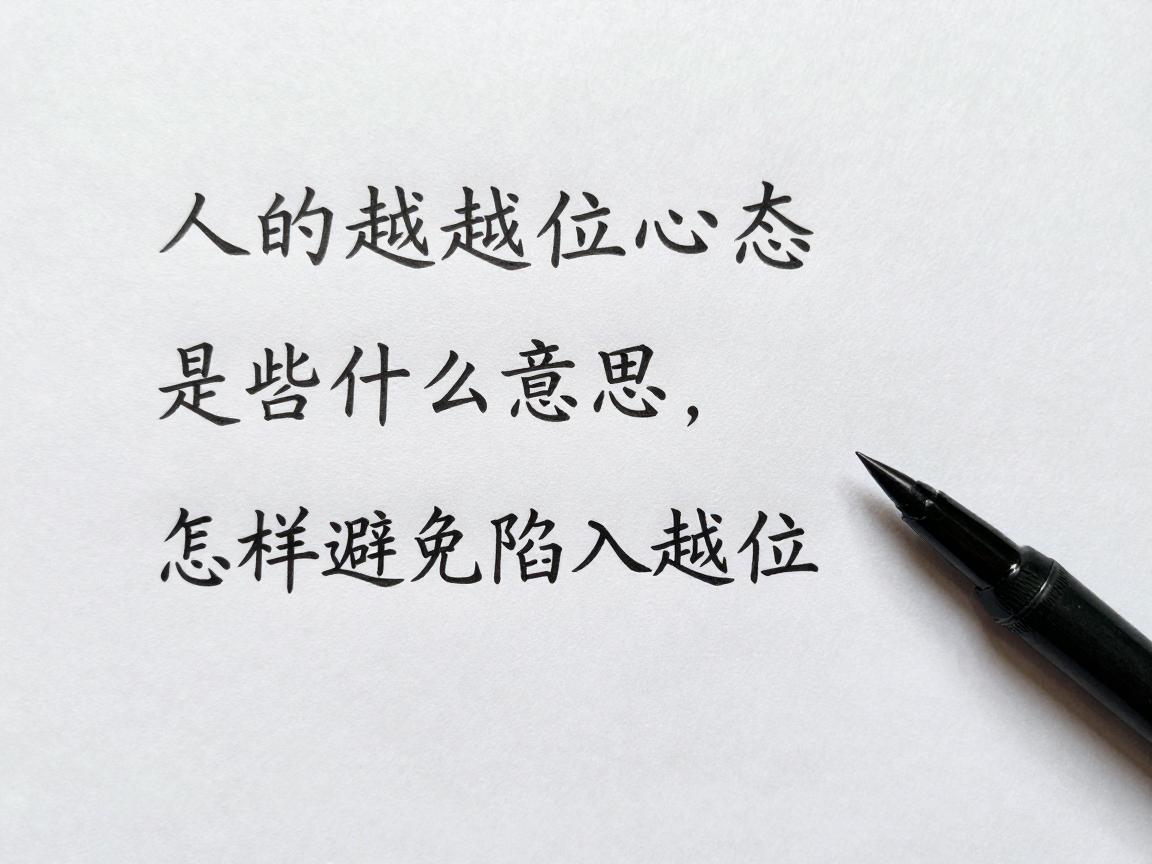 人的越越位心态
是些什么意思，
怎样避免陷入越位